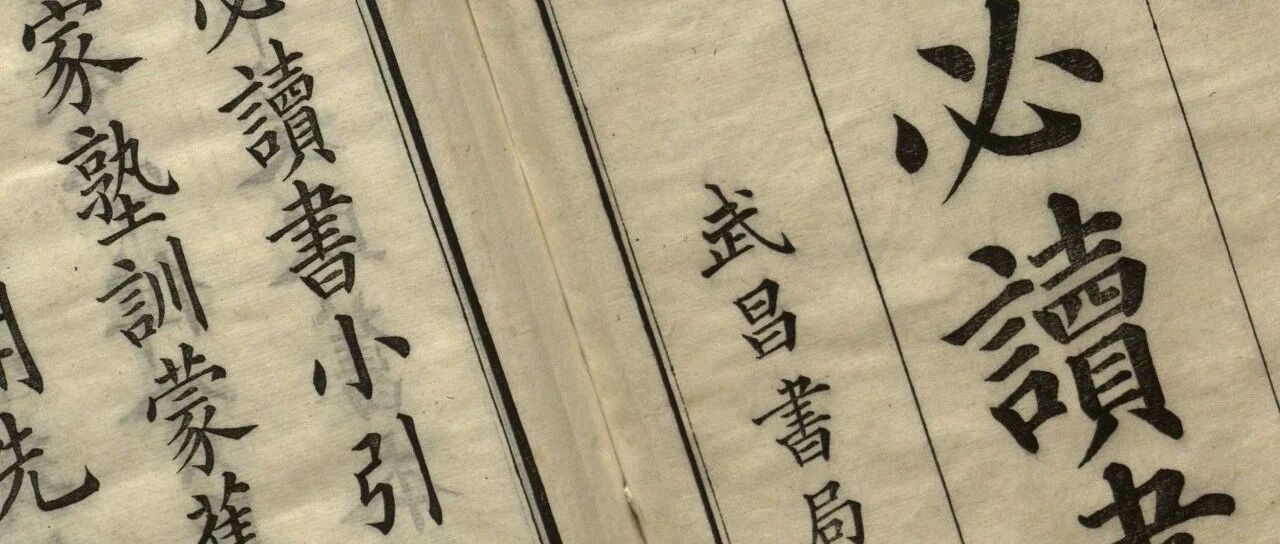 必讀書
武昌書局
必讀書小引
家塾訓蒙舊
先